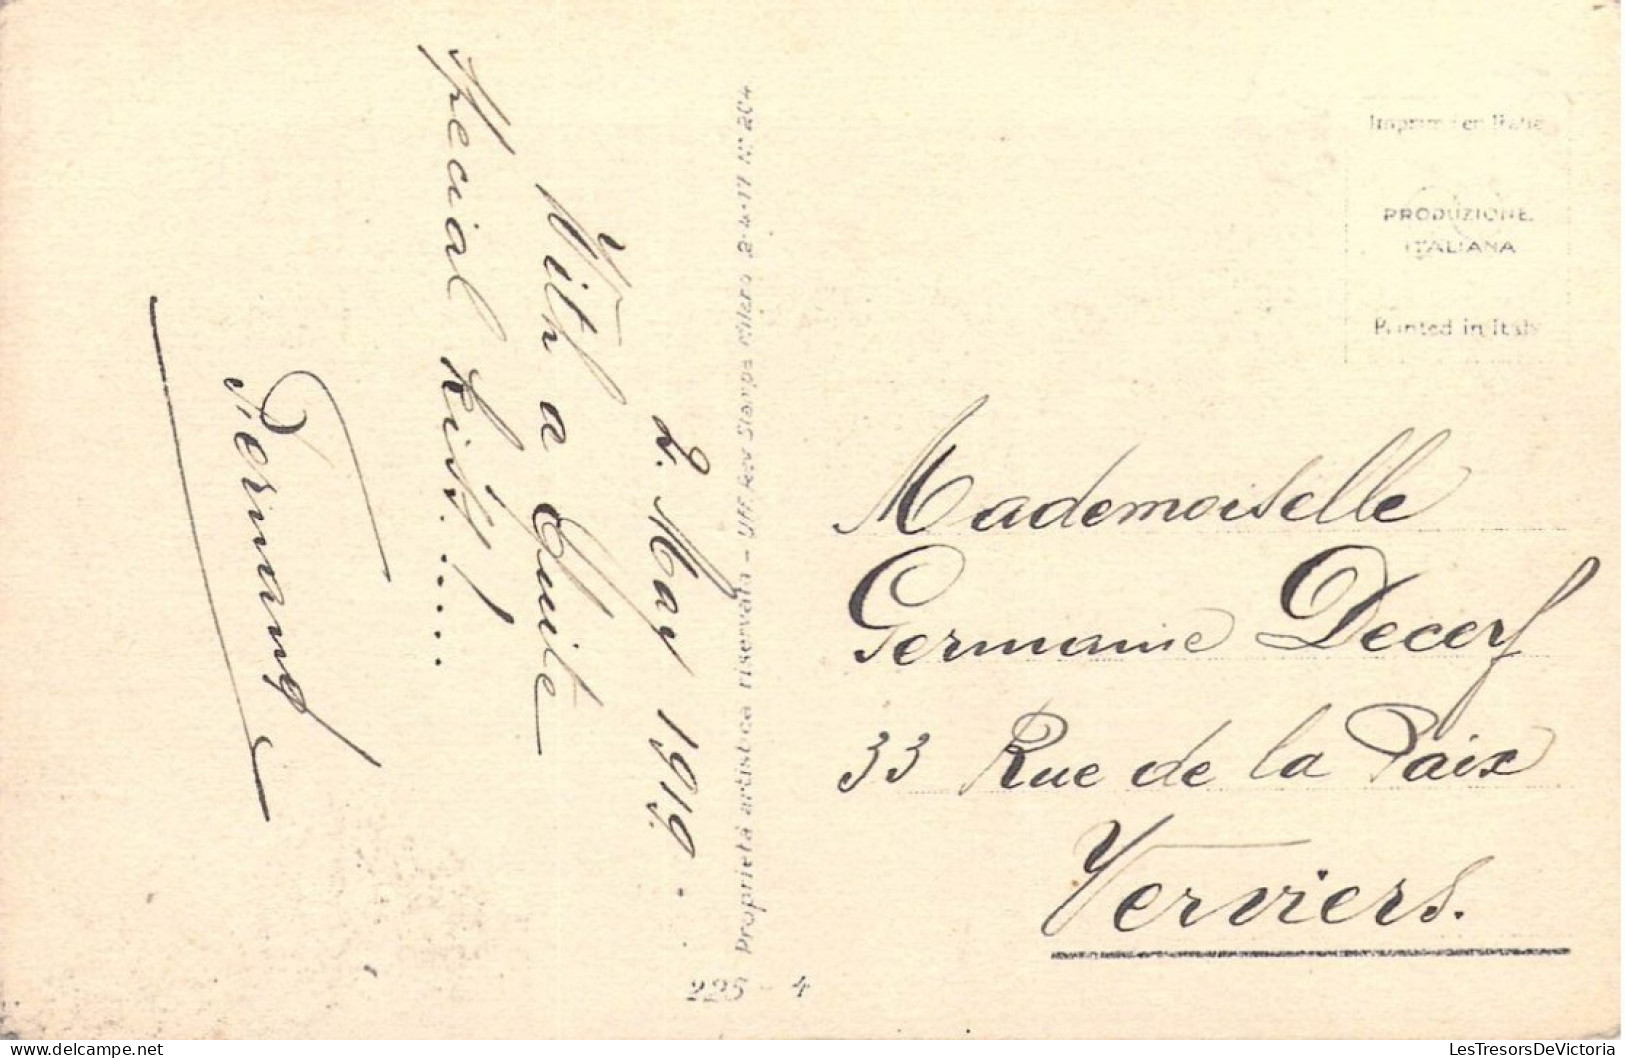 2. May 1919.
With a Quite
special kist!....
Fernand
Proprietà artistica riservata - Uff. Rev. Stampa Milano 2-4-17 N° 204
225 - 4
Imprimé en Italie
PRODUZIONE
ITALIANA
Printed in Italy
Mademoiselle
Germaine Decerf
33 Rue de la Paix
Verviers.
LesTresorsDeVictoria
delcampe.net